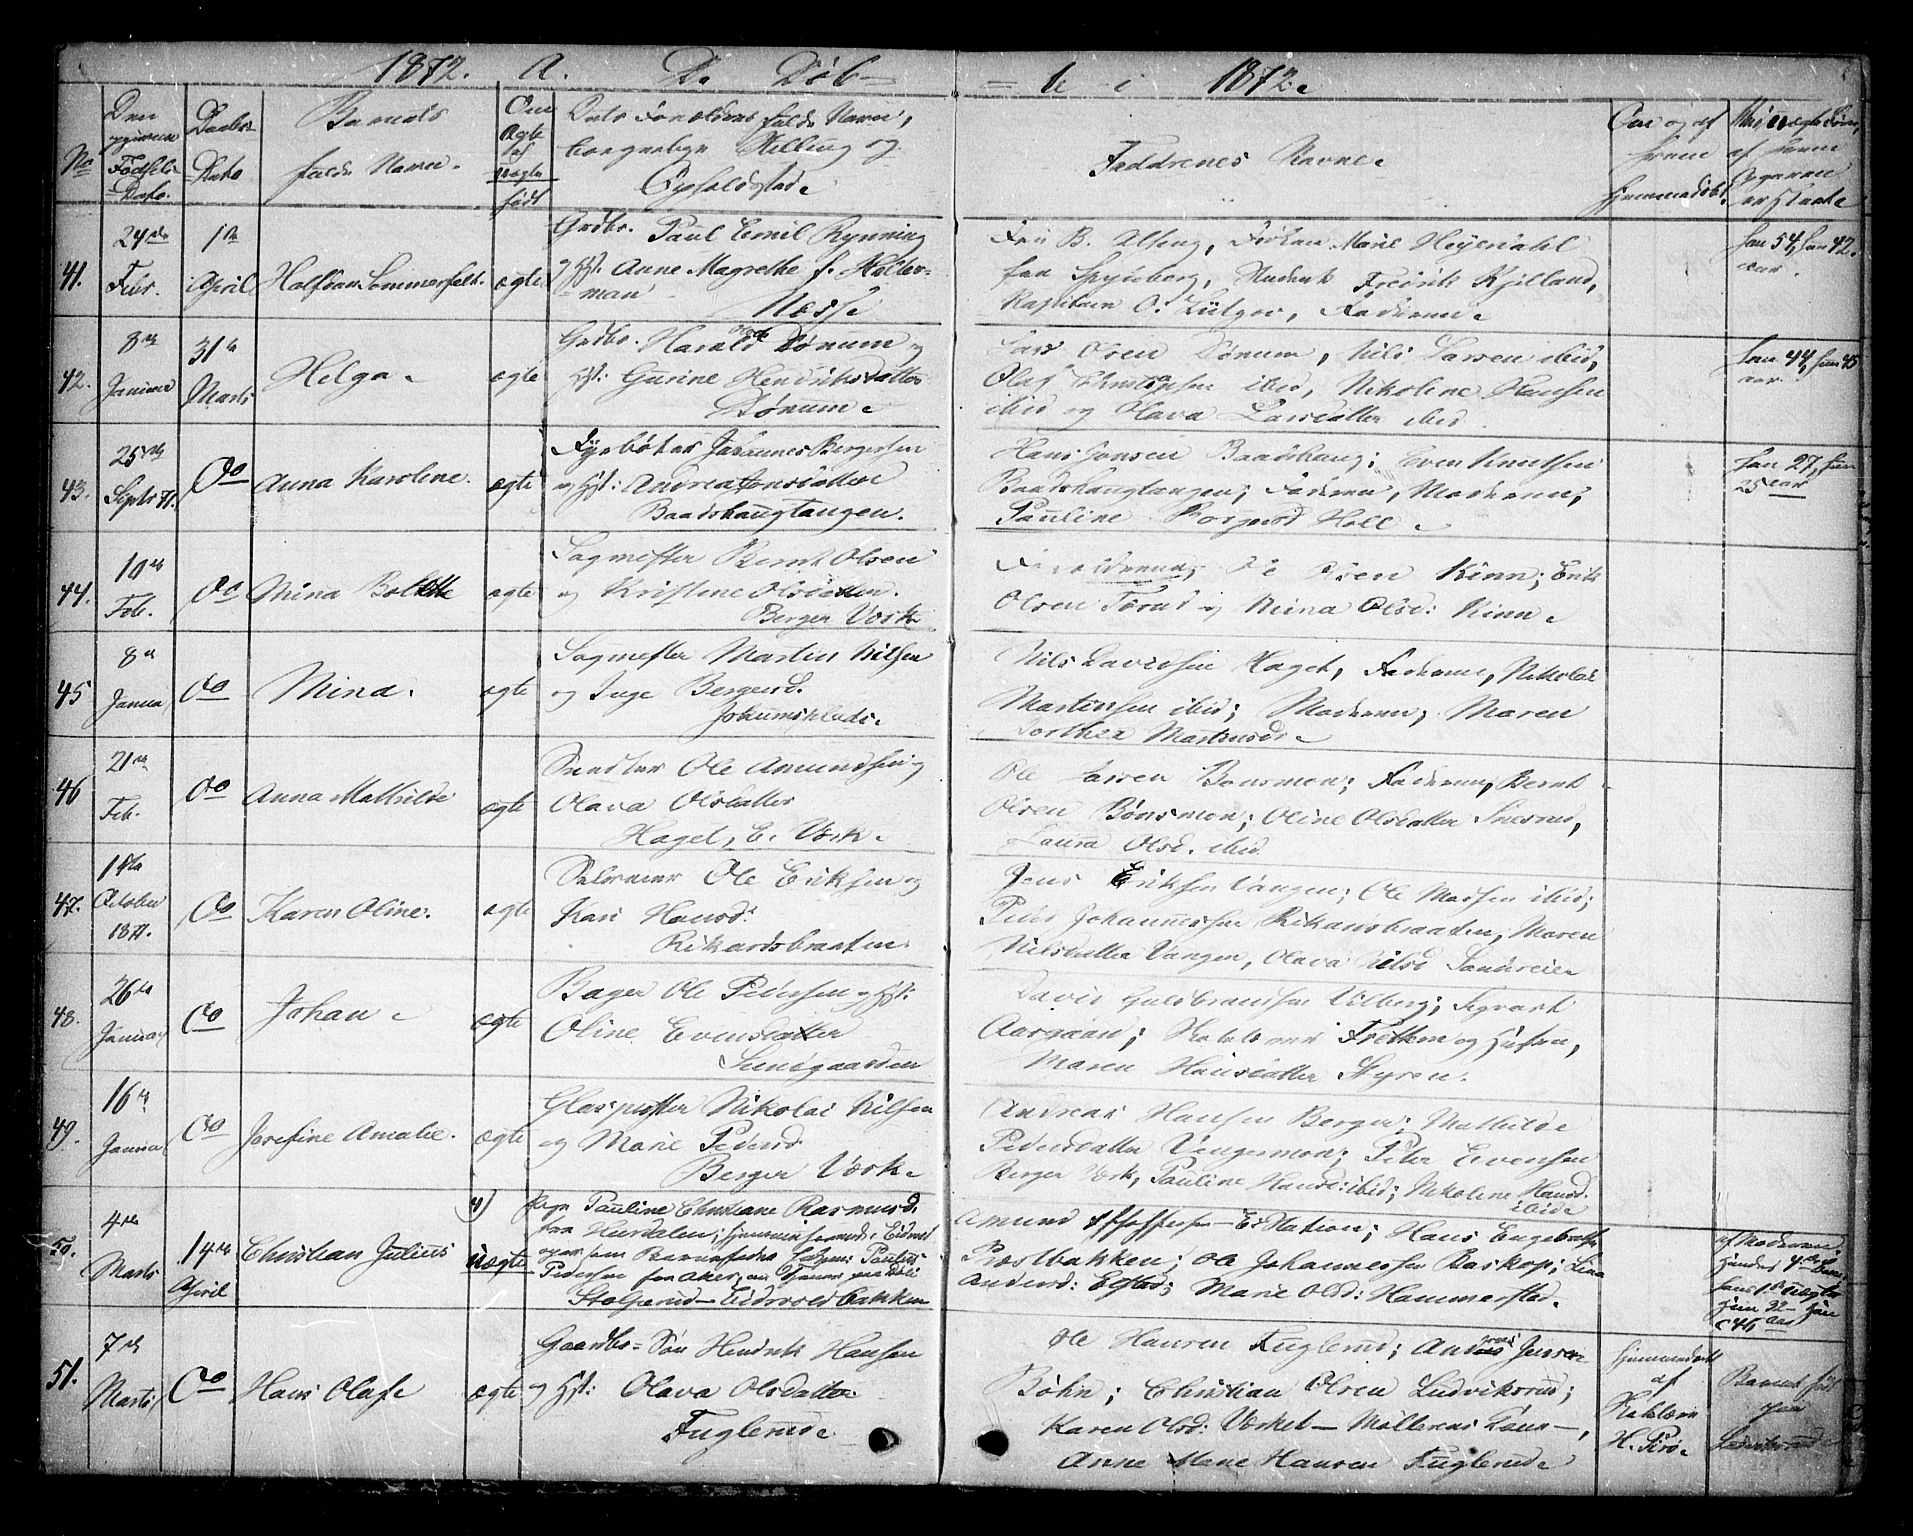 1872. A. De Døb= =te i 1872.
No
Den
opgivne
Fødsels=
Dato.
Daabs=
Dato
Barnets
fulde Navn.
Om
Ægte
el.
uægte
født
Dets Forældres fulde Navn,
Borgerlige Stilling og
Opholdssted.
Faddrenes Navne.
Om og af
hvem
hjemmedøbt.
af hvem
Opgaven
er skeet.
41.
24de
Febr.
1ste
April
Halfdan Sommerfelt.
ægte
Grdbr. Paul Emil Rynning
og Hst. Anne Magrethe f. Holter=
=man
Næss.
Fru B. Alseng, Frøken Marie Heyerdahl
fra Spydeberg, Student Fredrik Kjelland,
Kaptein O. Lützov, Faderen.
han 54, hun 42.
aar.
42.
8de
Januar
31te
Marts
Helga.
ægte
Grdbr. Harald Dønnum og
Hst. Gurine Hendriksdatter
Dønnum.
Lars Olsen Dønnum, Nils Larsen ibid,
Olaf Christophersen ibid, Nikoline Hansen
ibid og Olava Larsdatter ibid.
han 44, hun 45
aar.
43.
25de
Septb. 71.
Do
Anna Karoline.
ægte
Fyrbøter Johannes Børgersen
og Hst: Andrea Jensdatter
Baadshaugtangen.
Hans Jensen Baadshaug; Even Knudsen
Baadshaugtangen; Faderen, Moderen;
Pauline Borgersd Holl.
han 27, hun
25 aar
44.
10de
Feb.
Do
Mina Bolette
ægte
Sagmester Bernt Olsen
og Kristine Olsdatter.
Berger Værk.
Forældrene; Ole Olsen Kinn; Erik
Olsen Forud og Mina Olsd: Kinn.
45
8de
Januar
Do
Mina.
ægte
Sagmester Martin Nilsen
og Inge Bergersd.
Johannesplads.
Nils Davidsen Haget, Faderen, Nikolai
Martinsen ibid; Moderen, Maren
Dorthea Martinsd.
46
21de
Feb.
Do
Anna Mathilde
ægte
Snedker Ole Amundsen og
Olava Olsdatter
Haget, E. Værk.
Ole Larsen Bønsmoen; Faderen, Bernt
Olsen Bønsmoen; Oline Olsdatter Snesrud,
Laura Olsd. ibid.
47.
18de
October
1871.
Do
Karen Oline.
ægte
Selveier Ole Eriksen og
Kari Hansd:
Rikardsbraaten.
Jens Eriksen Vangen; Ole Madsen ibid;
Peder Johannessen Rikardsbraaten, Maren
Nilsdatter Vangen, Olava Nilsd Sandveien
48.
26de
Januar
Do
Johan.
ægte
Bager Ole Pedersen og Hst.
Oline Evensdatter
Sundgaarden
David Guldbrandsen Vilberg; Sigvart
Aargaan; Madamerne Frethem og Husen,
Maren Hansdatter Styren.
49.
16de
Januar
Do
Josefine Amalie.
ægte
Glaspuster Nikolai Nilsen
og Marie Pedersd
Berger Værk.
Andreas Hansen Berger; Mathilde
Pedersdatter Vengermoen; Peter Evensen
Berger Værk, Pauline Hansd: ibid; Nikoline Hansd.
ibid.
50.
4de
Marts
14de
April
Christian Julius
4)
uægte
Pige Pauline Christiane Rasmusd.
fra Hurdalen; hjemmehørende i Eidsvold
opgav som Barnefader Paulus
Pedersen fra Aker,
Stolperud Eidsvoldbakken
Amund Christophersen E. Station; Hans Engebretsen
Præstbakken; Ole Johannessen Baskop; Lina
Andersd: Elstad; Marie Olsd: Hammerstad.
af Moderen.
hendes 4de
hans 1ste uægte
hun 32
51.
7de
Marts
Do
Hans Olaf.
ægte
Gaardbr= Søn Hendrik Hansen
og Hst: Olava Olsdatter
Fuglerud.
Ole Hansen Fuglerud; Jensen
Bøhn; Christian Olsen Ludviksrud;
Karen Olsd: Værket Møllerens Kone,
Anne Marie Hansen Fuglerud.
hjemmedøbt
af
H.
Barnet født
paa
Ludviksrud.